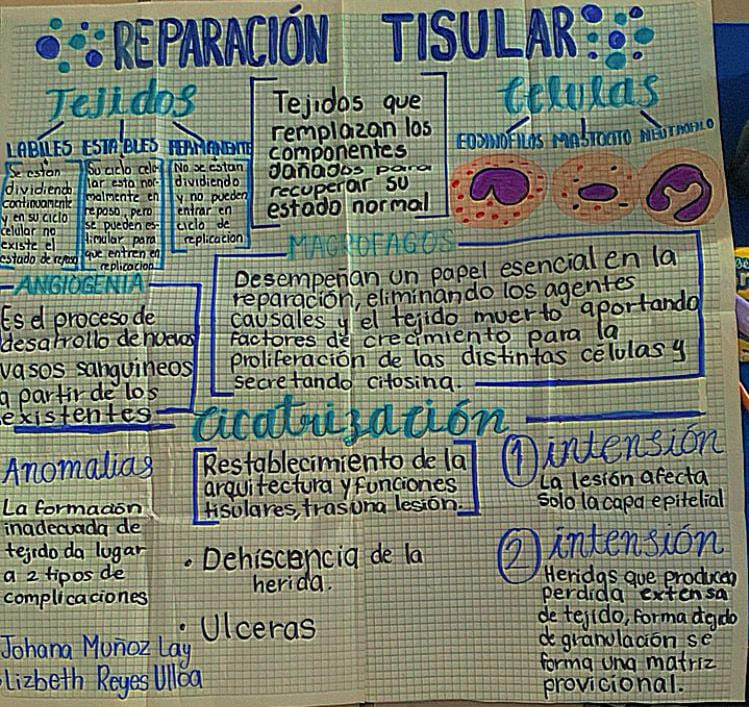 REPARACIÓN TISULAR
Tejidos
LABILES ESTABLES PERMANENTE
Se estan
dividiendo
continuamente
y en su ciclo
celular no
existe el
estado de reposo
Su ciclo celu-
lar esta nor-
malmente en
reposo, pero
se pueden es-
timular para
que entren en
replicacion
No se estan
dividiendo
y no pueden
entrar en
ciclo de
replicacion
Tejidos que
remplazan los
componentes
dañados para
recuperar su
estado normal
Celulas
EOSINOFILOS MASTOCITO NEUTROFILO
MACROFAGOS
Desempeñan un papel esencial en la
reparación, eliminando los agentes
causales y el tejido muerto aportando
factores de crecimiento para la
proliferación de las distintas células y
secretando citosina.
ANGIOGENIA
Es el proceso de
desarrollo de nuevos
vasos sanguineos
a partir de los
existentes
Cicatrización
Restablecimiento de la
arquitectura y funciones
tisulares, tras una lesión.
Anomalias
La formación
inadecuada de
tejido da lugar
a 2 tipos de
complicaciones
• Dehiscencia de la
herida.
• Ulceras
1) intensión
La lesión afecta
solo la capa epitelial
2) intensión
Heridas que producen
perdida extensa
de tejido, forma tejido
de granulación se
forma una matriz
provicional.
Johana Muñoz Lay
Lizbeth Reyes Ulloa